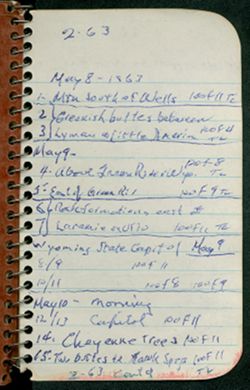 2-63
May 8-1963
1- Mtn South of Wells 100 f 11 Tc
2 Greenish buttes between
3 Lyman & Little America 100 f 11 Tc
May 9-
4- Above Green River Wyo. 100 f 8 Tc
5- East of Green Riv 100 f 9 Tc
6 Rock formations east
7 Laramie 100 f 10 Tc
Wyoming State Capitol May 9
8/9 100 f 11
10/11 100 f 8 100 f 9
May 10- morning
12/13 Capitol 100 f 11
14- Cheyenne Trees 100 f 11
15- Two buttes 100 f 11
2-63 Cont'd Tc